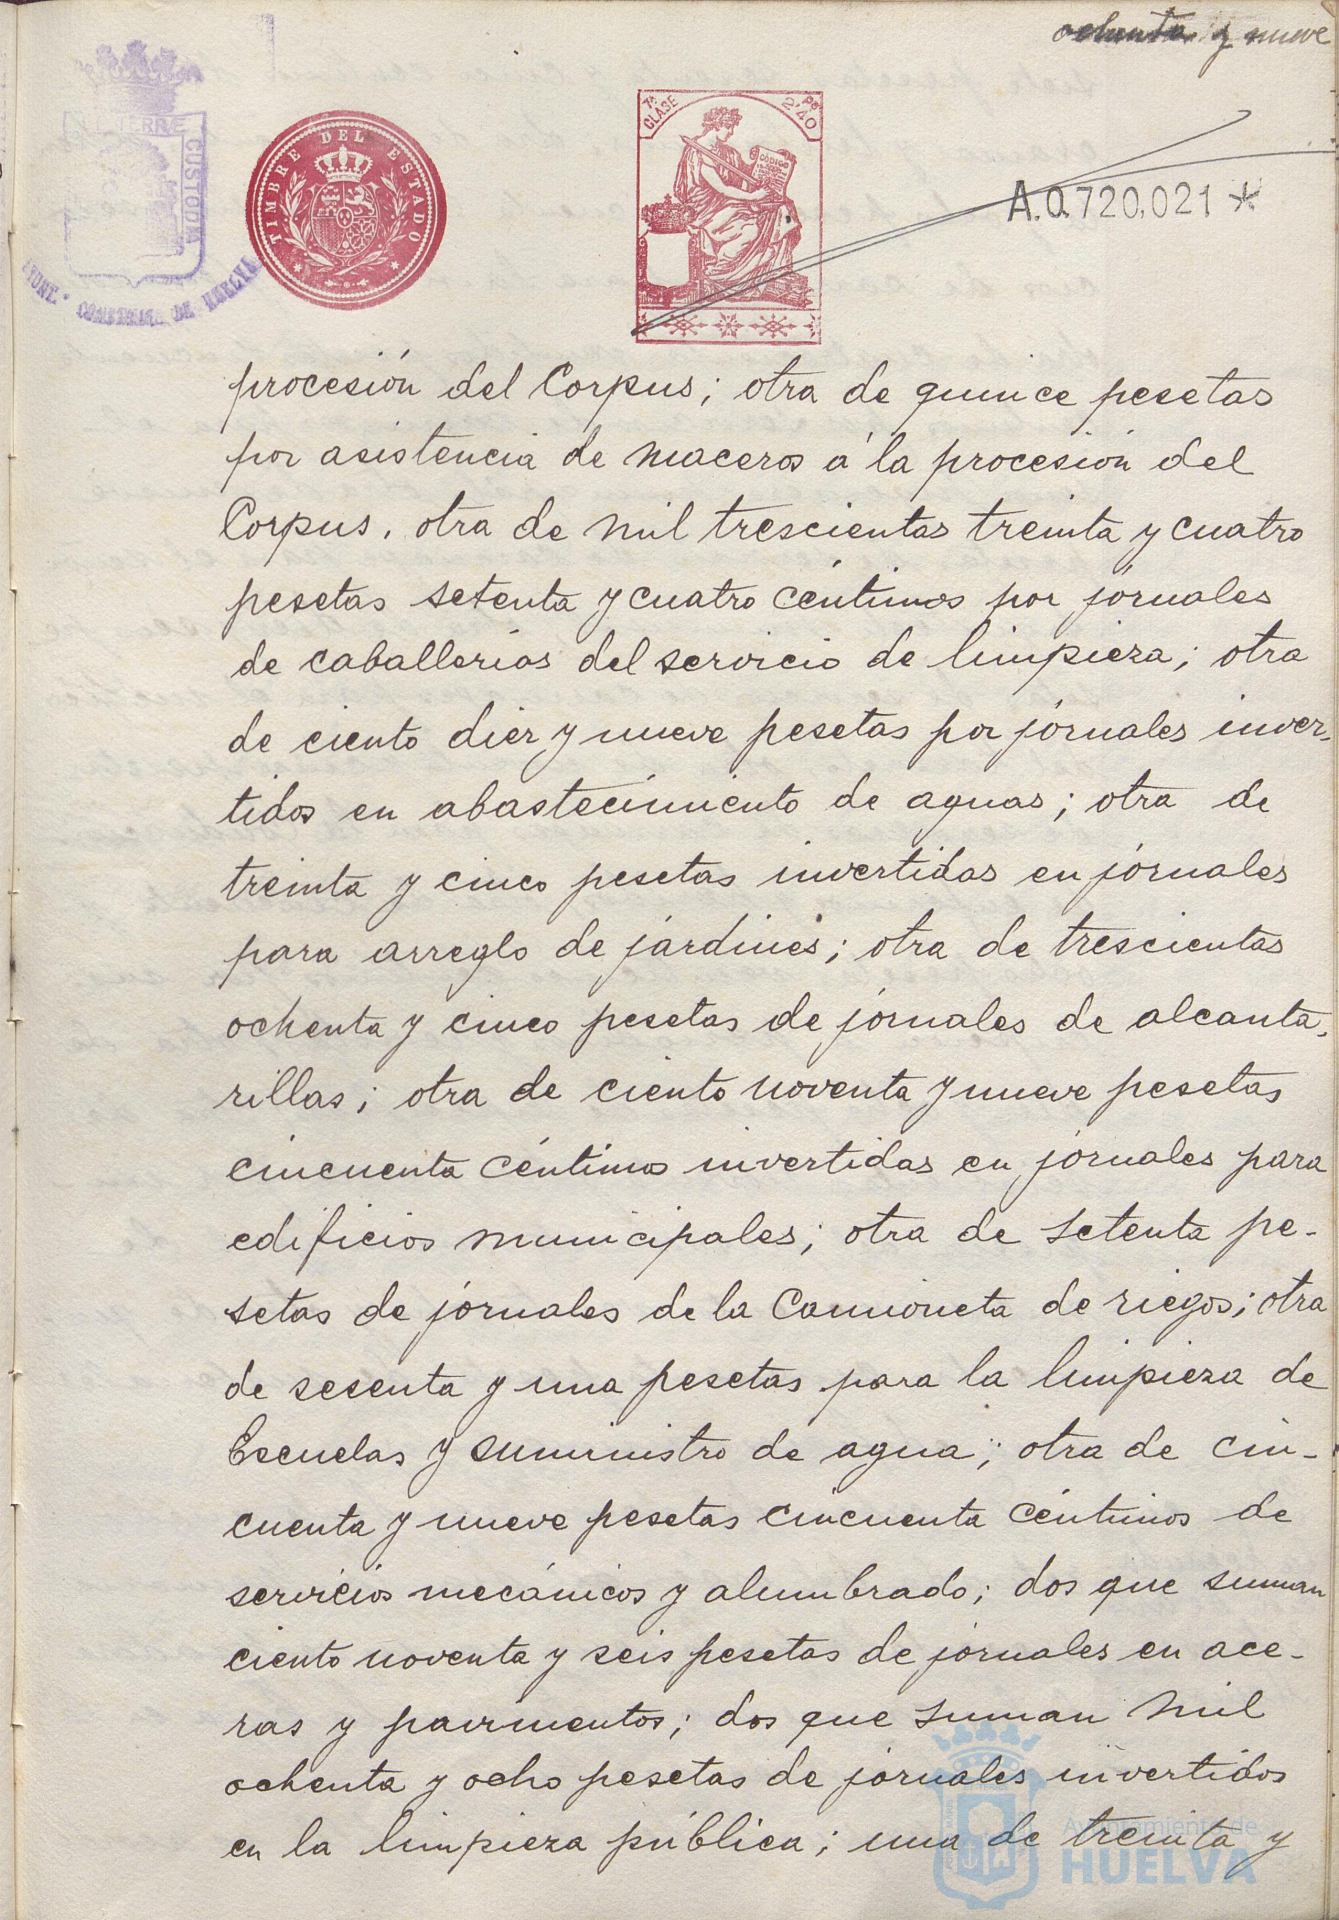 ochenta y nueve
TERRAE CUSTODIA
DE HUELVA
TIMBRE DEL ESTADO
7ª CLASE
2'40
CÓDIGO
A.0.720,021*
procesión del Corpus; otra de quince pesetas
por asistencia de maceros á la procesión del
Corpus, otra de mil trescientas treinta y cuatro
pesetas setenta y cuatro céntimos por jornales
de caballerías del servicio de limpieza; otra
de ciento diez y nueve pesetas por jornales inver-
tidos en abastecimiento de aguas; otra de
treinta y cinco pesetas invertidas en jornales
para arreglo de jardines; otra de trescientas
ochenta y cinco pesetas de jornales de alcanta-
rillas; otra de ciento noventa y nueve pesetas
cincuenta céntimos invertidas en jornales para
edificios municipales; otra de setenta pe-
setas de jornales de la Camioneta de riegos; otra
de sesenta y una pesetas para la limpieza de
Escuelas y suministro de agua; otra de cin-
cuenta y nueve pesetas cincuenta céntimos de
servicios mecánicos y alumbrado; dos que suman
ciento noventa y seis pesetas de jornales en ace-
ras y pavimentos; dos que suman mil
ochenta y ocho pesetas de jornales invertidos
en la limpieza pública; una de treinta y
Ayuntamiento de
HUELVA